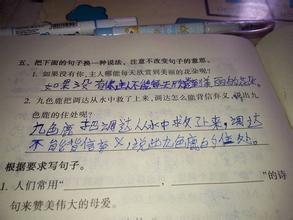 五、把下面的句子换一种说法，注意不改变句子的意思。
1. 如果没有你，主人哪能每天欣赏到美丽的花朵呢？
如果没有你，主人不能每天欣赏到美丽的花朵。
2. 九色鹿把调达从水中救了上来，调达怎么能背信弃义，说出九
色鹿的住处呢？
九色鹿把调达从水中求欠上来，调达
不能背信弃义，说出九色鹿的住处。
根据要求写句子。
1. 人们常用“ ， ”的诗
句来赞美伟大的母爱。